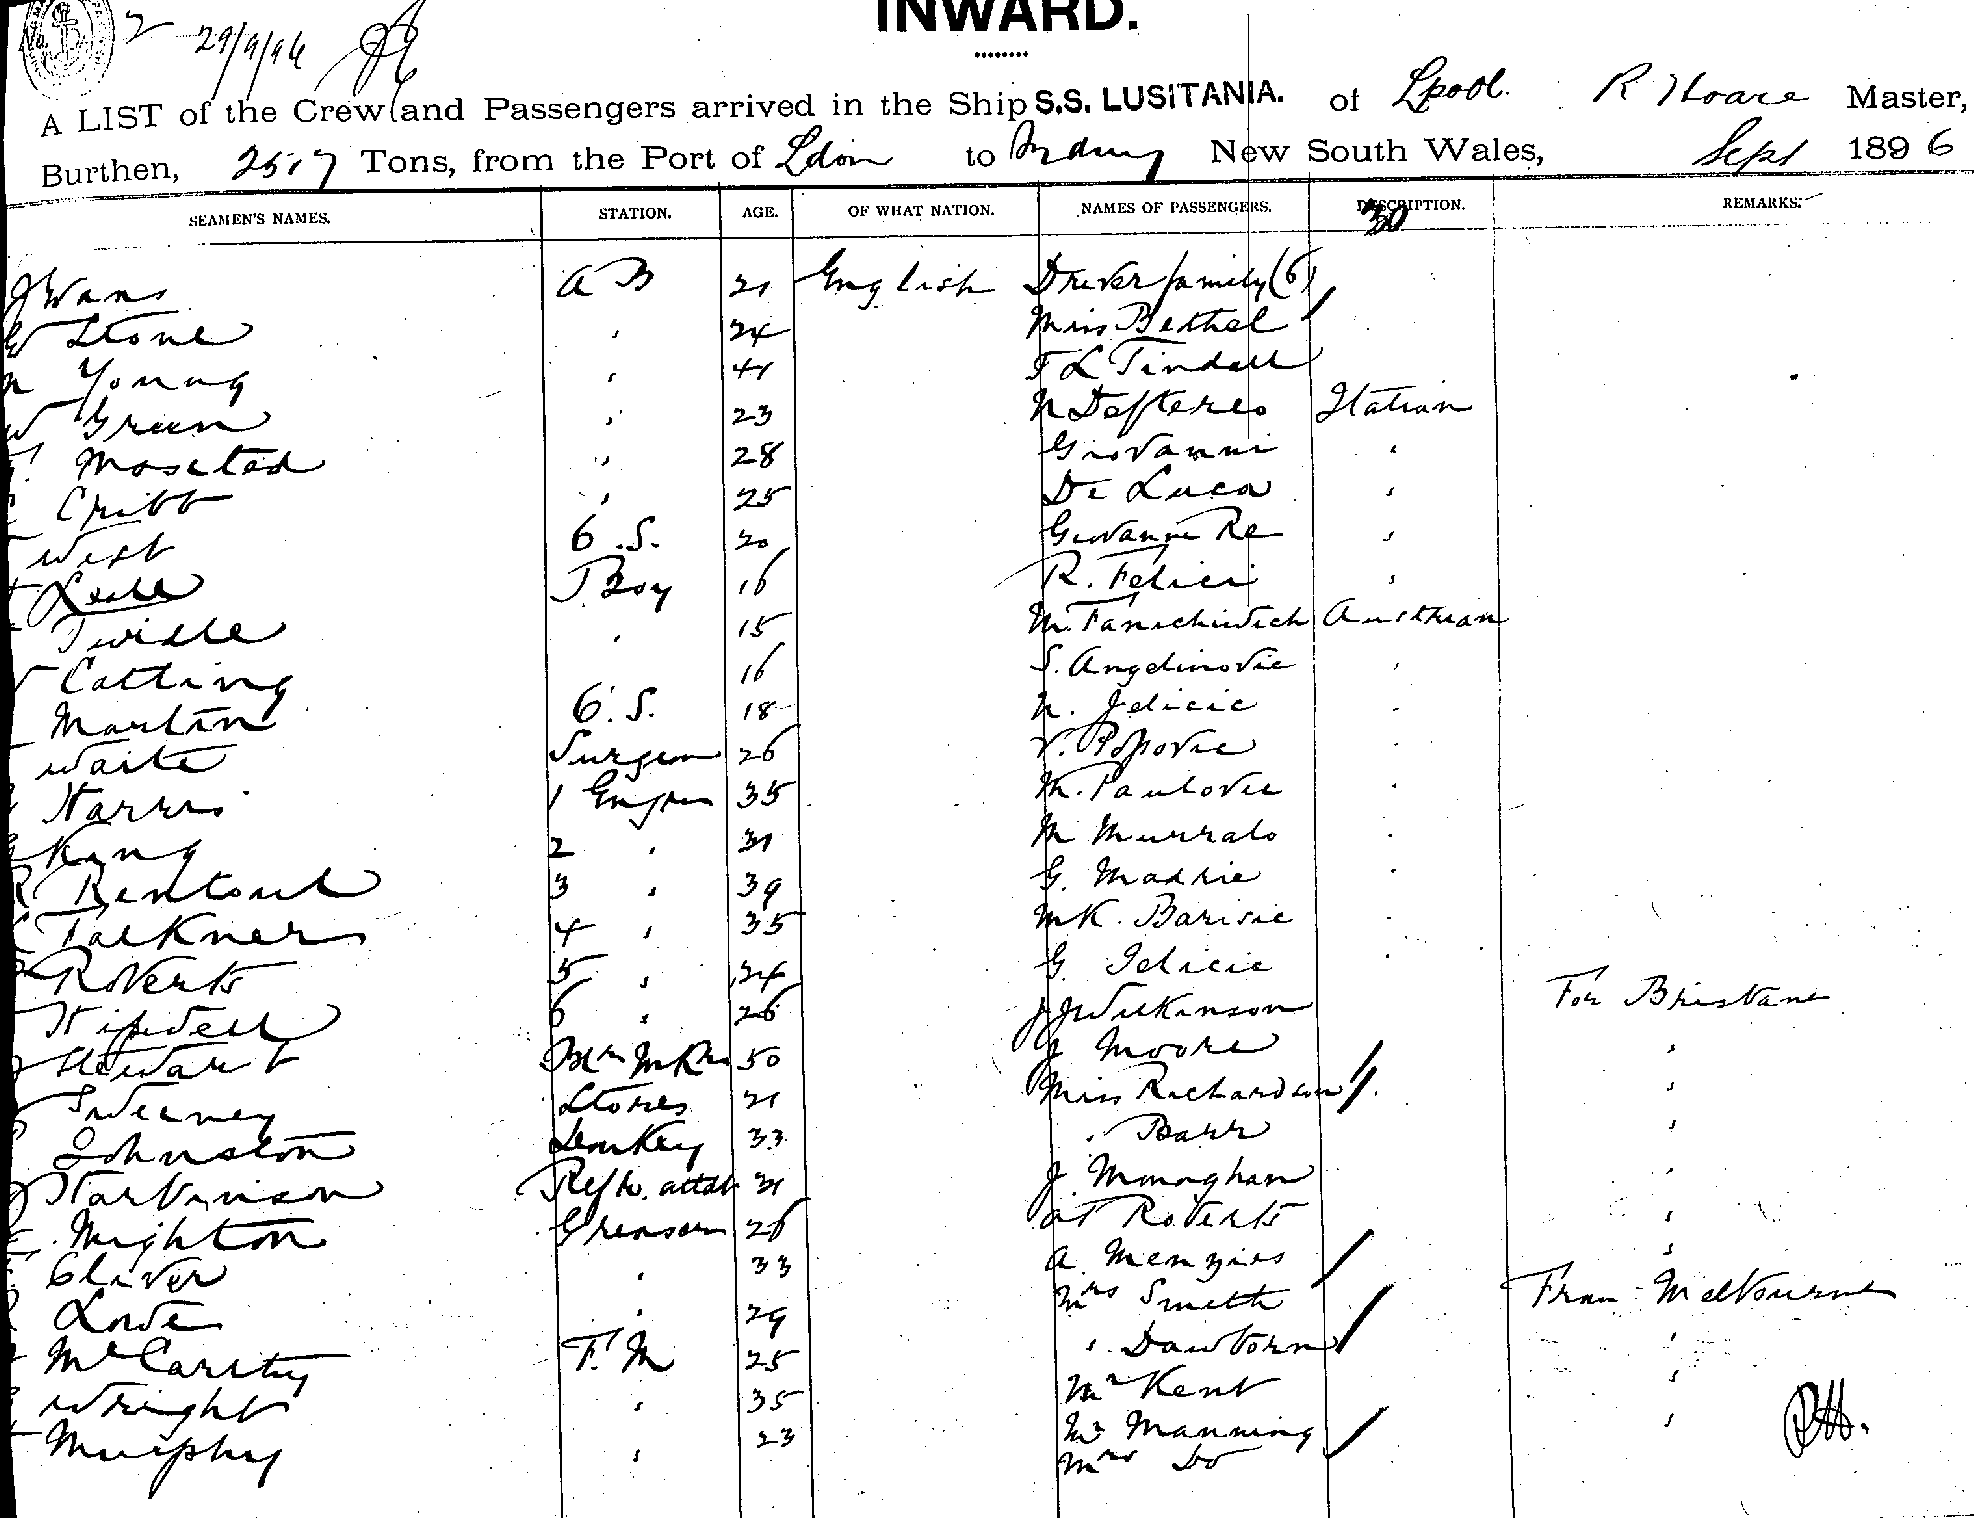 INWARD.
2 29/9/96
A LIST of the Crew and Passengers arrived in the Ship S.S. LUSITANIA. of Lpool. R Hoare Master,
Burthen, 2517 Tons, from the Port of Ldon to Sydney New South Wales, Sept 1896
SEAMEN'S NAMES. STATION. AGE. OF WHAT NATION. NAMES OF PASSENGERS. DESCRIPTION. REMARKS.
30
J Evans A B 21 English Driver family (6)
W Stone " 24 Miss Bethel
Young " 41 F L Tindall
W Green " 23 N Deftereo Italian
Mosetad " 28 Giovanni "
Cribb " 25 De Luca "
West O.S. 20 Giovanni Re "
Boy 16 R. Felici "
Twidle " 15 M. Tanichivich Austrian
Catling 16 S. Angelinovic "
Martin O.S. 18 N. Jelicic "
Waite Surgeon 26 V. Popovic "
Harris 1 Engr 35 M. Paulovic "
King 2 " 31 M Murralo "
R Rentoul 3 " 39 G. Madrie "
Falkner 4 " 35 MK. Barisic "
Roberts 5 " 24 G. Jelicic "
6 " 26 J J Wilkinson For Brisbane
Stewart 50 J Moore "
Sweeney Stores 21 Miss Richardson "
Johnston Donkey 33 " Barr "
31 J. Monaghan "
Mighton Greaser 26 A T Roberts "
Oliver " 33 A. Menzies "
Lowe " 29 Mrs Smith From Melbourne
McCarthy F. M 25 " Dawborn "
Wright " 35 Mr Kent "
Murphy " 23 Mr Manning "
Mrs Do
RH.